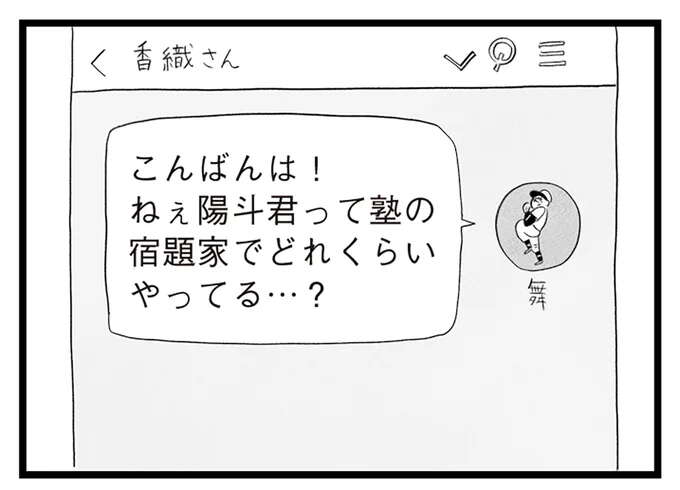 香織さん
こんばんは！
ねぇ陽斗君って塾の
宿題家でどれくらい
やってる…？
舞